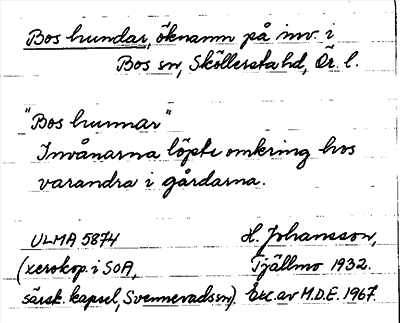 Bos hundar, öknamn på inv. i
Bos sn, Sköllersta hd, Ör. l.
"Bos hunnar"
Invånarna löpte omkring hos
varandra i gårdarna.
ULMA 5874
(xerokop. i SOA,
särsk. kapsel, Svennevadssn)
H. Johansson,
Tjällmo 1932.
Exc. av M.D.E. 1967.